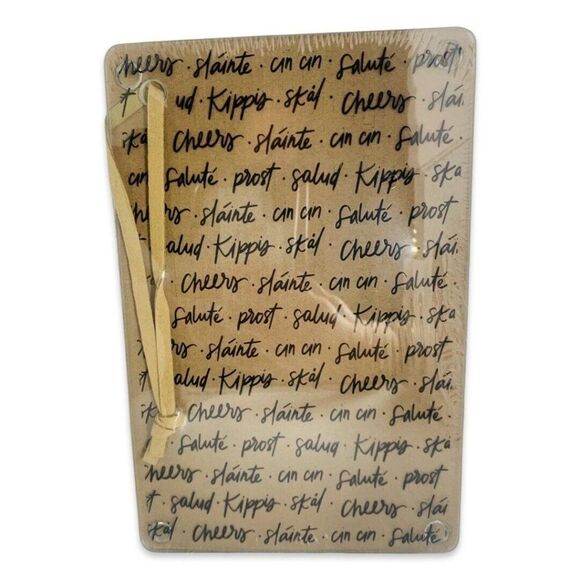 heers · sláinte · cin cin · Saluté · prost
t ud Kippis · skål · Cheers · slái
skå Cheers · sláinte · cin cin · Saluté ·
cin Saluté · prost · salud · Kippis · ska
hers · sláinte · cin cin · Saluté · prost
alud · Kippis · skål · Cheers · slái.
Cheers · sláinte · cin cin · Saluté ·
Saluté · prost · salud · Kippis · ska
rs · sláinte · cin cin · Saluté · prost
t alud · Kippis · skål · Cheers · slái.
skå Cheers · sláinte · cin cin · Saluté ·
Saluté · prost · salud · Kippis · skå
heers · sláinte · cin cin · Saluté · prost
t · salud Kippis · skål · Cheers · slái
skål · Cheers · sláinte · cin cin · Saluté